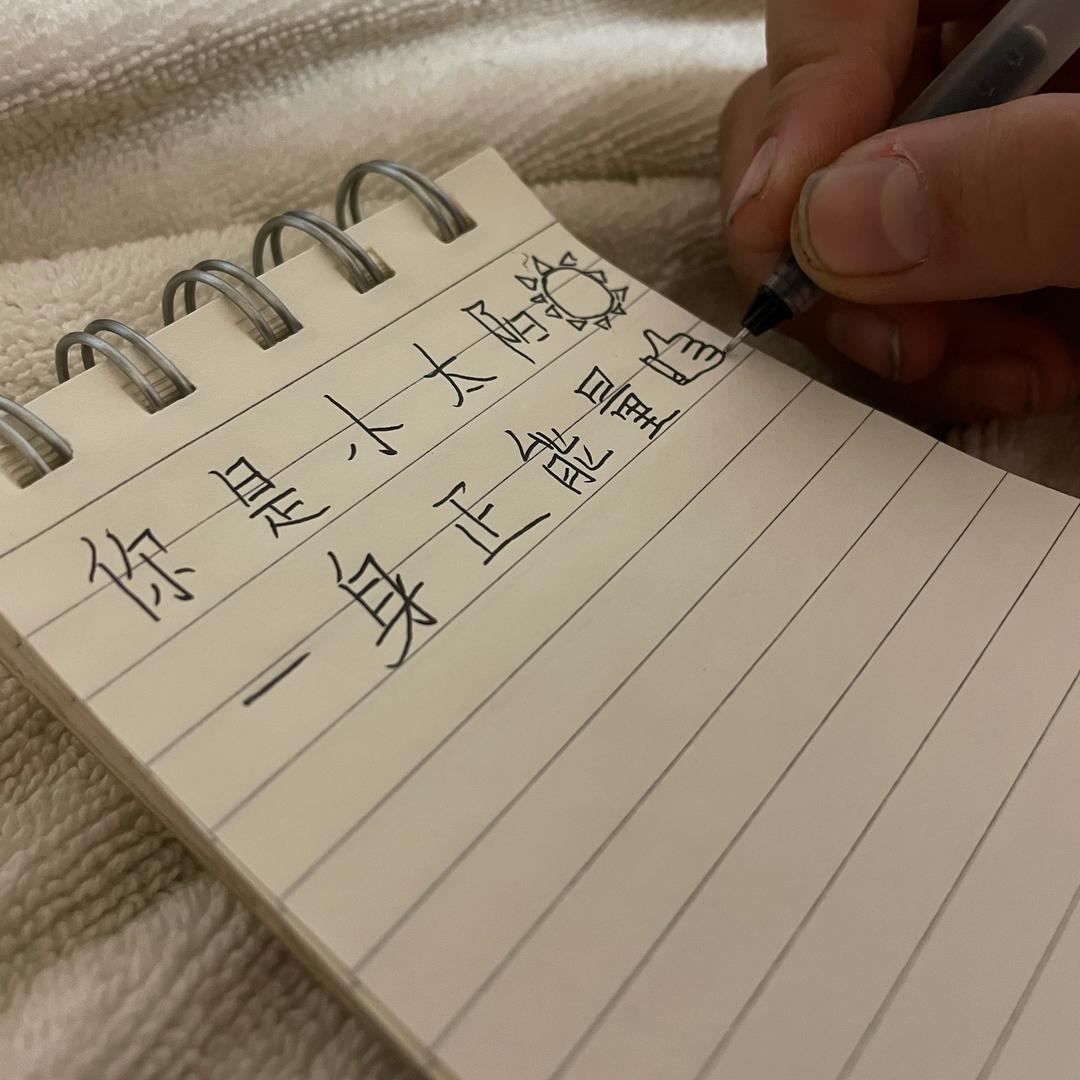 你是小太阳
一身正能量